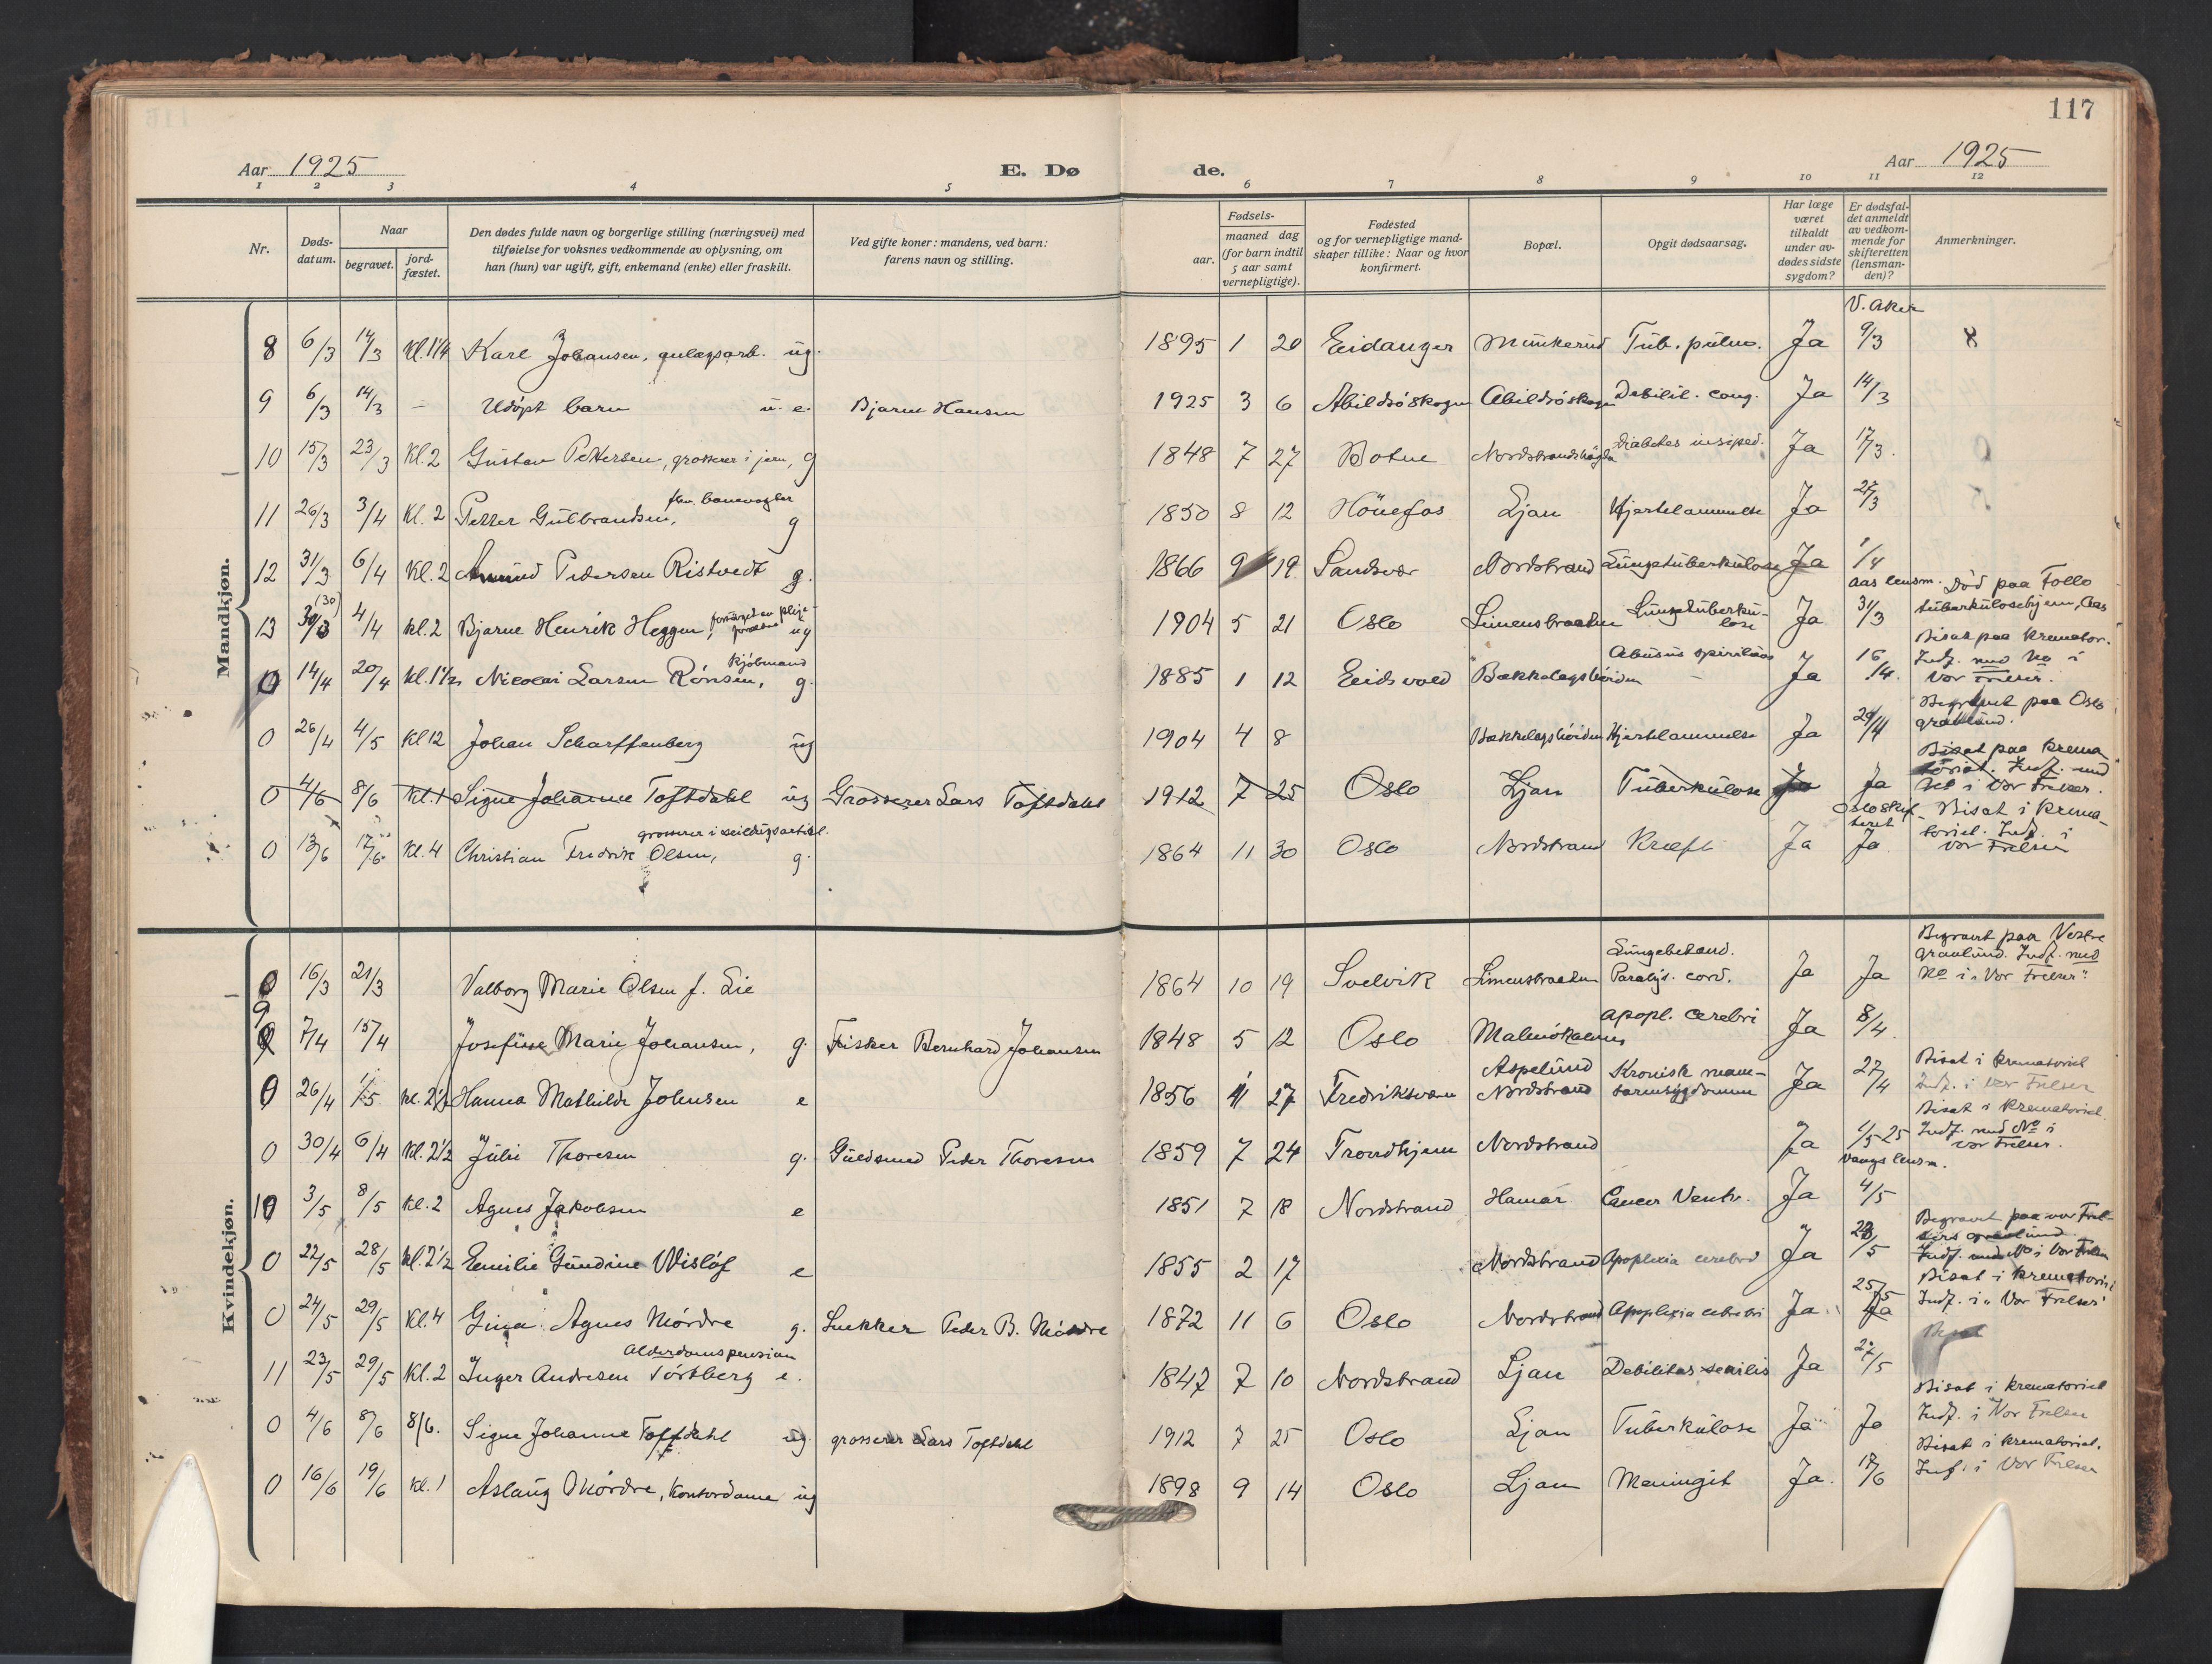 117
Aar 1925 E. Dø de. Aar 1925
1 2 3 4 5 6 7 8 9 10 11 12
Nr.
Døds-datum.
Naar
begravet.
jord-fæstet.
Den dødes fulde navn og borgerlige stilling (næringsvei) med
tilføielse for voksnes vedkommende av oplysning, om
han (hun) var ugift, gift, enkemand (enke) eller fraskilt.
Ved gifte koner: mandens, ved barn:
farens navn og stilling.
Fødsels-
aar.
maaned dag
(for barn indtil
5 aar samt
vernepligtige).
Fødested
og for vernepligtige mand-
skaper tillike: Naar og hvor
konfirmert.
Bopæl.
Opgit dødsaarsag.
Har læge
været
tilkaldt
under av-
dødes sidste
sygdom?
Er dødsfal-
det anmeldt
av vedkom-
mende for
skifteretten
(lensman-
den)?
Anmerkninger.
Mandkjøn.
V. Aker
8 6/3 14/3 Kl. 1 1/4 Karl Johansen, anlægsarb. ug. 1895 1 20 Eidanger Munkerud Tub. pulm. Ja 9/3
9 6/3 14/3 — Udøpt barn u. e. Bjarne Hansen 1925 3 6 Abildsöskogen Abildsöskogen Debilit. cong. Ja 14/3
10 15/3 23/3 Kl. 2 Gustav Pettersen, grosserer i jern, g 1848 7 27 Botne Nordstrandshögda Diabetes insiped. Ja 17/3
11 26/3 3/4 Kl. 2 Petter Gulbrandsen, fhv. banevogter g 1850 8 12 Hönefos Ljan Hjertelammelse Ja 27/3
12 31/3 6/4 Kl. 2 Amund Pedersen Ristvedt g. 1866 9 19 Sandsvær Nordstrand Lungetuberkulose Ja 1/4
Aas lensm. Död paa Follo
13 30/3 (30) 4/4 Kl. 2 Bjarne Henrik Heggen, forsörget av pleie-forældre ug 1904 5 21 Oslo Simensbraaten Lungetuberku-lose Ja 31/3 tuberkulosehjem, Aas
Bisat paa Kremator.
0 14/4 20/4 Kl. 1 1/2 Nicolai Larsen Rönsen, kjöbmand g. 1885 1 12 Eidsvold Bækkelagshöiden Abusus spirituos Ja 16/4 Indf. med No i
Vor Frelser.
Begravet paa Oslo
0 26/4 4/5 Kl 12 Johan Scharffenberg ug 1904 4 8 Bækkelagshöiden Hjertelammelse Ja 29/4 gravlund.
Bisat paa krema-
0 4/6 8/6 Kl. 1 Signe Johanne Toftdahl ug Grosserer Lars Toftdahl 1912 7 25 Oslo Ljan Tuberkulose Ja Ja toriet. Indf. med
No i Vor Frelser.
Oslo skifteret Bisat i krema-
0 13/6 17/6 Kl. 4 Christian Fredrik Olsen, grosserer i seildugsartikl. g. 1864 11 30 Oslo Nordstrand Kræft Ja Ja toriet. Indf. i
Vor Frelser
Kvindekjøn.
Begravet paa Vestre
0 16/3 21/3 Valborg Marie Olsen f. Lie 1864 10 19 Svelvik Simensbraaten Lungebetænd. Paralys. cord. Ja Ja gravlund. Indf. med
No i „Vor Frelser"
9 7/4 15/4 Josefine Marie Johansen, g. Fisker Bernhard Johansen 1848 5 12 Oslo Malmökalven Apopl. cerebri Ja 8/4
0 26/4 1/5 Kl. 2 1/2 Hanna Mathilde Johnsen e 1856 11 27 Fredriksværn Aspelund Nordstrand Kronisk mave-tarmsygdomme Ja 27/4 Bisat i krematoriet
Indf. i Vor Frelser
Bisat i krematoriet
0 30/4 6/4 Kl. 2 1/2 Julie Thoresen g. Guldsmed Peder Thoresen 1859 7 24 Trondhjem Nordstrand Ja 1/5 25 Indf. med No i
Vor Frelser.
Vangs lensm.
10 3/5 8/5 Kl. 2 Agnes Jakobsen e 1851 7 18 Nordstrand Hamar Cancer Ventr. Ja 4/5
Begravet paa Vor Frel-
0 22/5 28/5 Kl. 2 1/2 Emilie Gundine Wisløf e 1855 2 17 Nordstrand Apoplexia cerebri Ja 23/5 sers gravlund
Indf. med No i Vor Frelser
Bisat i krematoriet
0 24/5 29/5 Kl. 4 Gina Agnes Mördre g. Snekker Peder B. Mördre 1872 11 6 Oslo Nordstrand Apoplexia cerebri Ja 25/5 Ja Indf. i „Vor Frelser"
11 23/5 29/5 Kl. 2 Inger Andresen Törtberg Alderdomspension e. 1847 7 10 Nordstrand Ljan Debilitas senilis Ja 27/5
Bisat i krematoriet
0 4/6 8/6 8/6. Signe Johanne Toftdahl ug. grosserer Lars Toftdahl 1912 7 25 Oslo Ljan Tuberkulose Ja Ja Indf. i Vor Frelser
Bisat i krematoriet.
0 16/6 19/6 Kl. 1 Aslaug Mördre, kontordame ug 1898 9 14 Oslo Ljan Meningit Ja. 17/6 Inf. i Vor Frelser